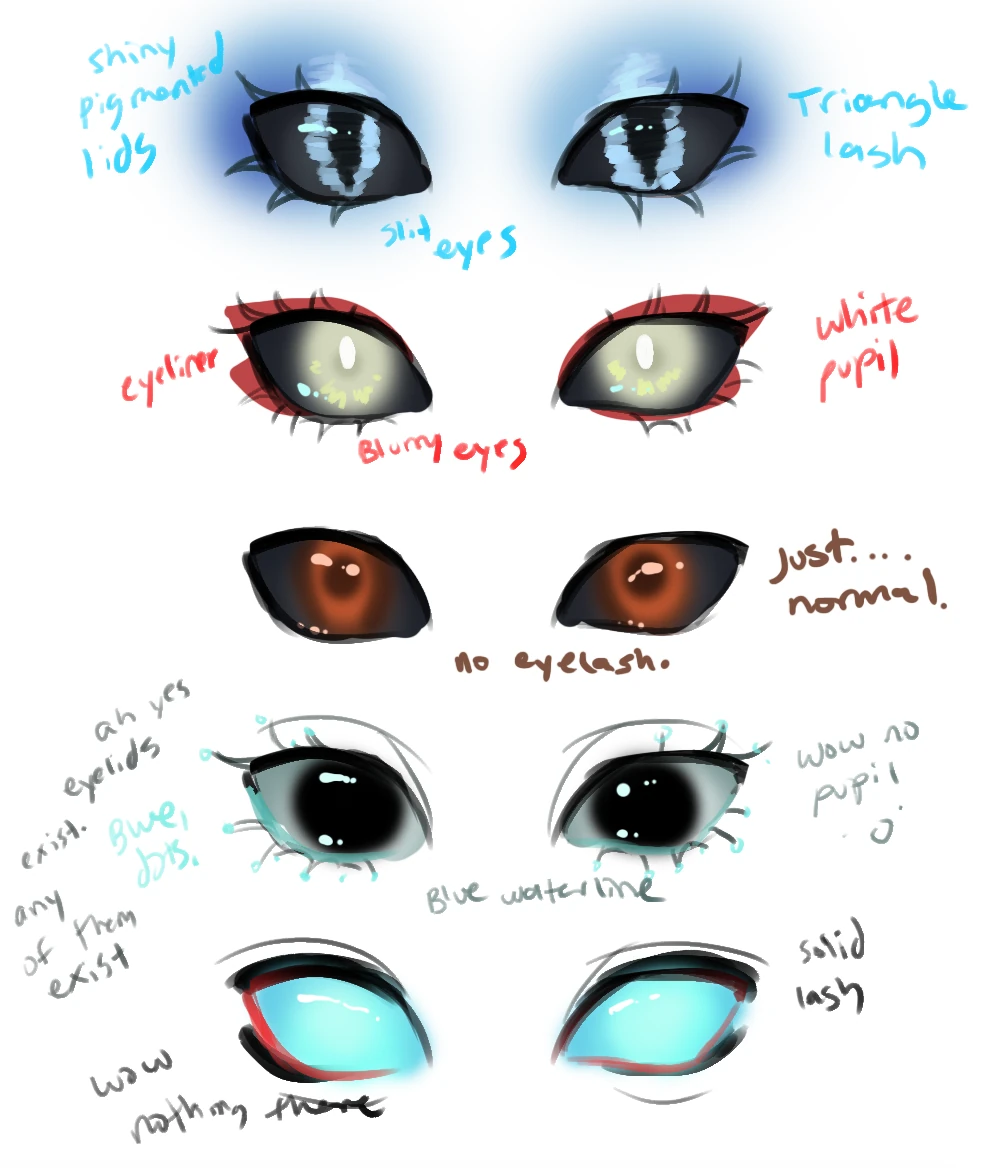 shiny
pigmented
lids
Triangle
lash
slit eyes
eyeliner
white
pupil
Blurry eyes
Just....
normal.
no eyelash.
ah yes
eyelids
exist.
any
of them
exist
Blue,
wow no
pupil
:O
Blue waterline
solid
lash
wow
nothing there